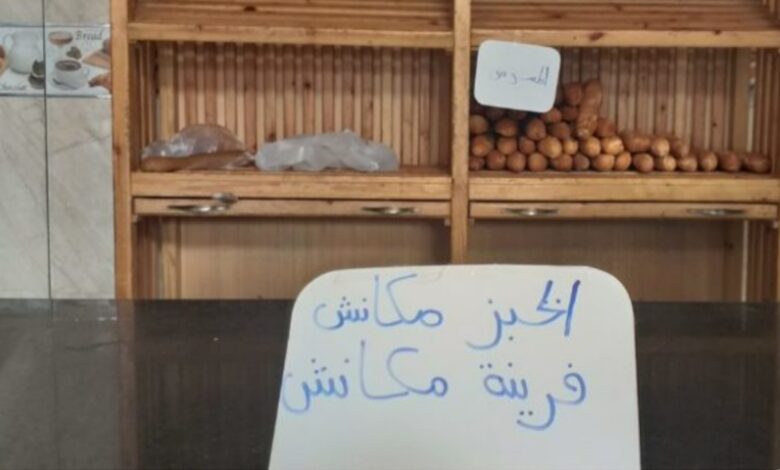 Bread
المحسن
الخبز مكانش
فرينة مكانش